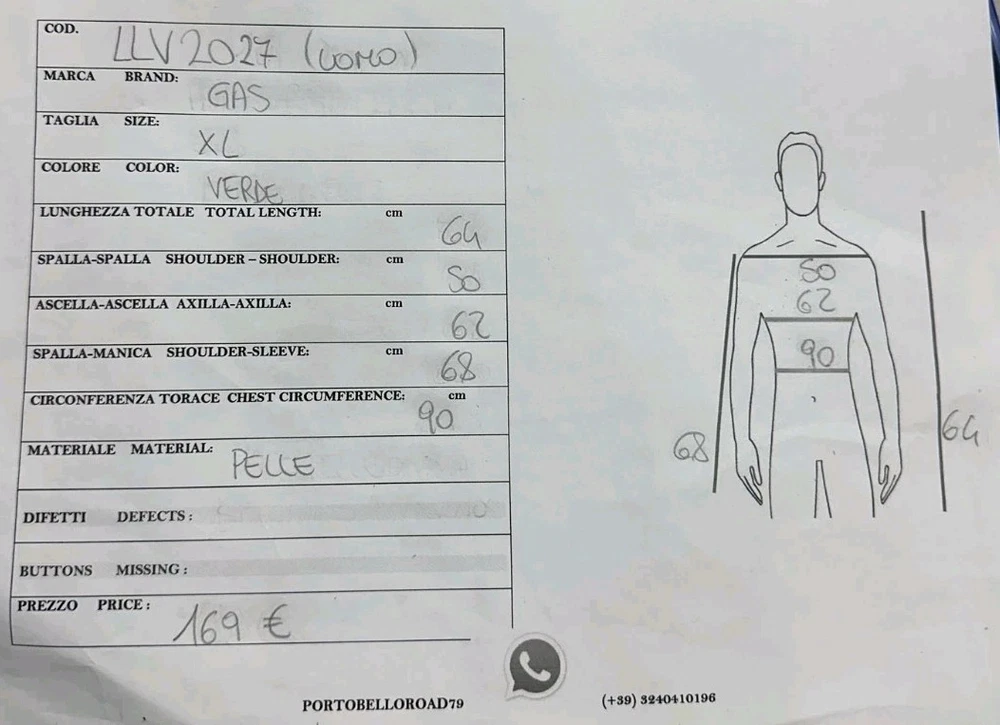 COD. LLV2027 (UOMO)
MARCA BRAND: GAS
TAGLIA SIZE: XL
COLORE COLOR: VERDE
LUNGHEZZA TOTALE TOTAL LENGTH: cm 64
SPALLA-SPALLA SHOULDER – SHOULDER: cm 50
ASCELLA-ASCELLA AXILLA-AXILLA: cm 62
SPALLA-MANICA SHOULDER-SLEEVE: cm 68
CIRCONFERENZA TORACE CHEST CIRCUMFERENCE: cm 90
MATERIALE MATERIAL: PELLE
DIFETTI DEFECTS :
BUTTONS MISSING :
PREZZO PRICE : 169 €
50
62
90
68
64
PORTOBELLOROAD79 (+39) 3240410196